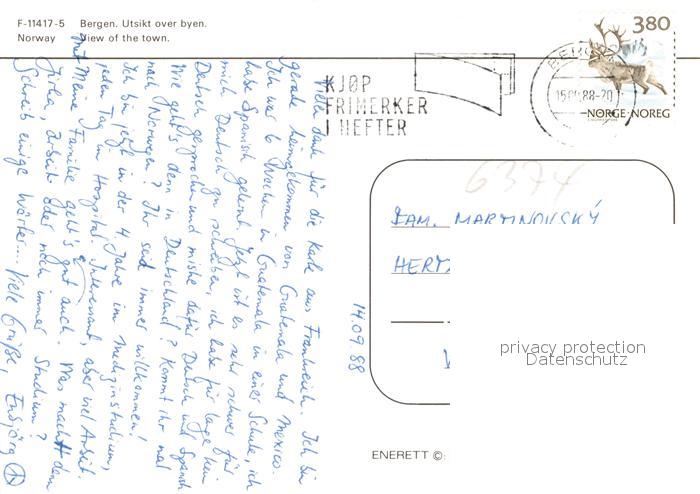 F-11417-5 Bergen. Utsikt over byen.
Norway View of the town.
380
NORGE·NOREG
BERGEN
15.09.88-20
KJØP
FRIMERKER
I HEFTER
6374
FAM. MARTINOVSKÝ
HERTZ
privacy protection
Datenschutz
ENERETT ©:
14.09.88
Vielen dank für die Karte aus Frankreich. Ich bin
gerade heimgekommen von Guatemala und Mexico.
Ich war 6 Wochen in Guatemala in einer Schule, ich
habe Spanisch gelernt. Jetzt ist es sehr schwer für
mich Deutsch zu schreiben, ich habe für lange kein
Deutsch gesprochen und mishe dafür Deutsch und Spanish
Wie geht's denn in Deutschland? Kommt ihr mal
nach Norwegen? Ihr seid immer willkommen!
Ich bin jetzt in der 4 Jahre im Medizinstudium,
jeden Tag im Hospital. Interessant, aber viel Arbeit.
Mit Meine Familie geht's gut auch. Was macht denn
Jirka, Arbeit oder noch immer Studium?
Schreib einige Wörter... Viele Grüße,